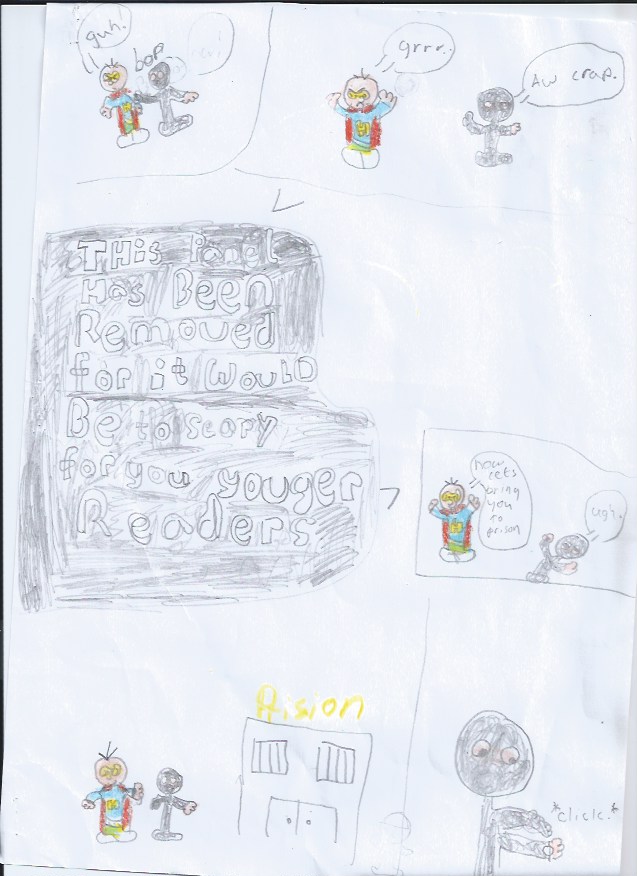 guh!
bop
grrr.
Aw crap.
THis Panel
Has Been
Removed
for it WoulD
Be to scary
for you youger
Readers
now
lets
bring
you
to
prison
ugh.
Prision
*click.*